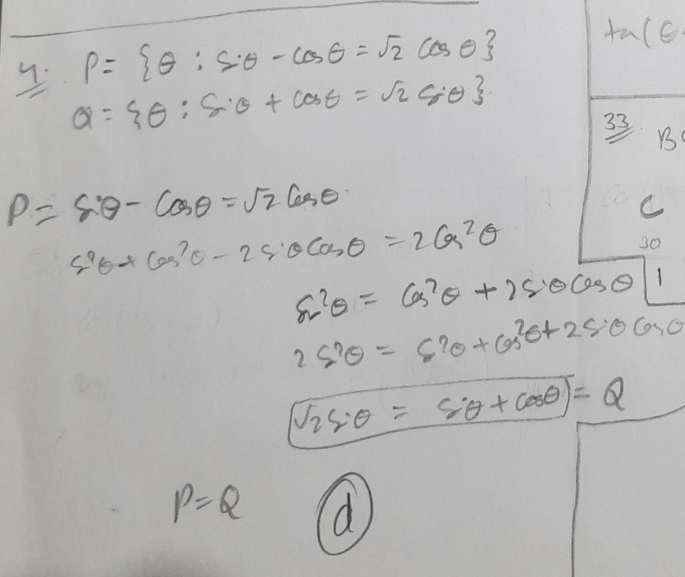 4. P = {θ : sinθ - cosθ = √2 cosθ}
Q = {θ : sinθ + cosθ = √2 sinθ}.
P = sinθ - cosθ = √2 cosθ.
s²θ + cos²θ - 2sinθcosθ = 2cos²θ
sin²θ = cos²θ + 2sinθcosθ
2s²θ = s²θ + cos²θ + 2sinθcosθ
√2sinθ = sinθ + cosθ = Q
P = Q (d)
tan(θ
33 B
C
30
1